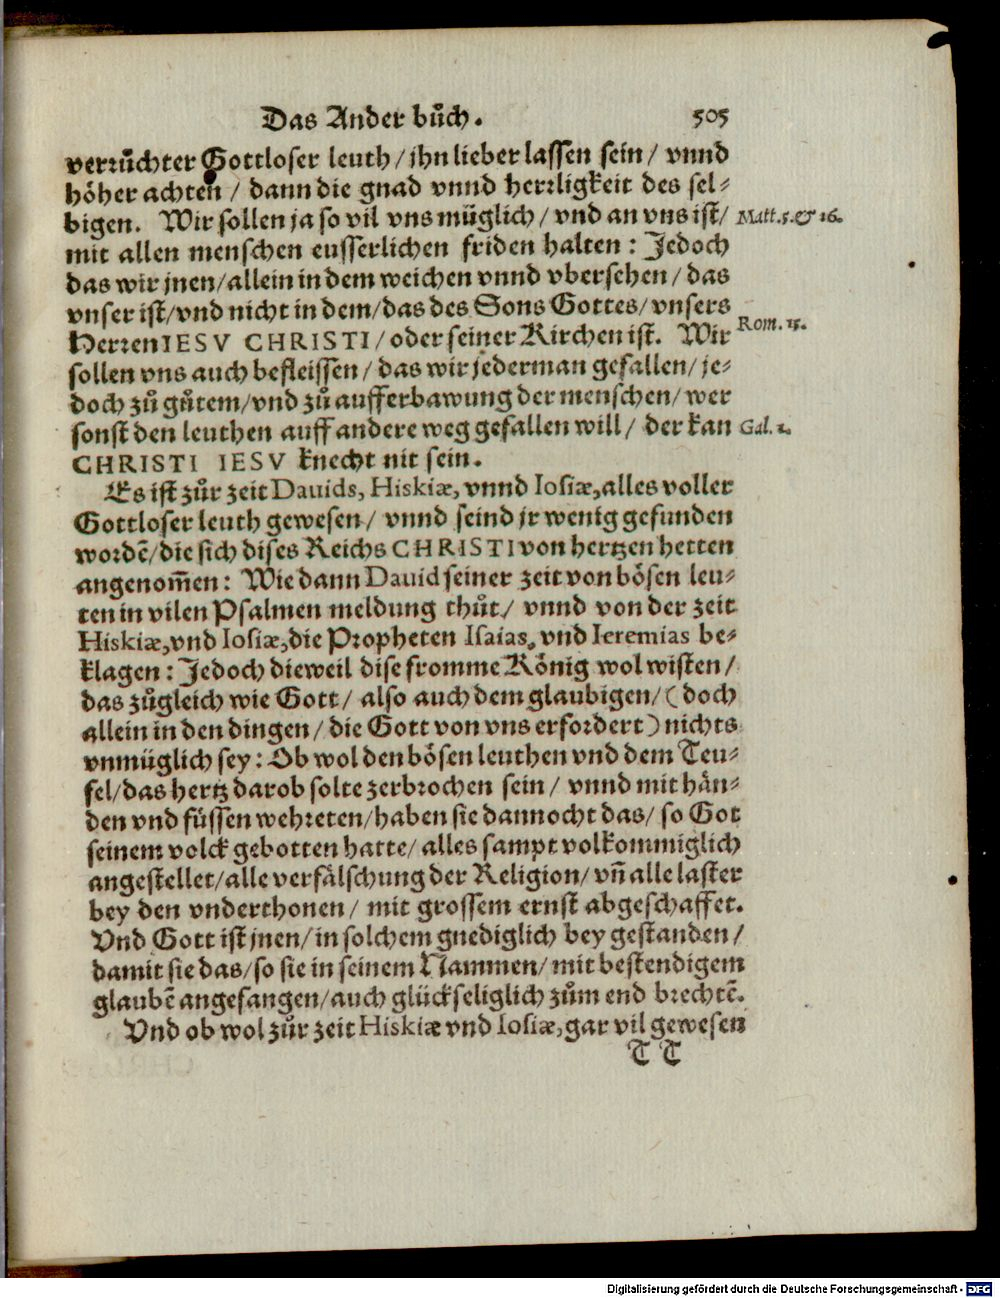 Das Ander bůch. 505
verrůchter Gottloser leuth / ihn lieber lassen sein / vnnd
höher achten / dann die gnad vnnd herrligkeit des sel-
bigen. Wir sollen ja so vil vns müglich / vnd an vns ist / Matt. 5. & 16.
mit allen menschen eusserlichen friden halten : Jedoch
das wir jnen / allein in dem weichen vnnd vbersehen / das
vnser ist / vnd nicht in dem / das des Sons Gottes / vnsers
Herren IESV CHRISTI / oder seiner Kirchen ist. Wir Rom. 15.
sollen vns auch befleissen / das wir jederman gefallen / je-
doch zů gůtem / vnd zů aufferbawung der menschen / wer
sonst den leuthen auff andere weg gefallen will / der kan Gal. 1.
CHRISTI IESV knecht nit sein.
Es ist zůr zeit Dauids, Hiskiæ, vnnd Iosiæ, alles voller
Gottloser leuth gewesen / vnnd seind jr wenig gefunden
wordē / die sich dises Reichs CHRISTI von hertzen hetten
angenom̄en : Wie dann Dauid seiner zeit von bösen leu-
ten in vilen Psalmen meldung thůt / vnnd von der zeit
Hiskiæ, vnd Iosiæ, die Propheten Isaias, vnd Ieremias be-
klagen : Jedoch dieweil dise fromme König wol wisten /
das zůgleich wie Gott / also auch dem glaubigen / ( doch
allein in den dingen / die Gott von vns erfordert ) nichts
vnmüglich sey : Ob wol den bösen leuthen vnd dem Teu-
fel / das hertz darob solte zerbrochen sein / vnnd mit hän-
den vnd füssen wehreten / haben sie dannocht das / so Got
seinem volck gebotten hatte / alles sampt volkommiglich
angestellet / alle verfälschung der Religion / vn̄ alle laster
bey den vnderthonen / mit grossem ernst abgeschaffet.
Vnd Gott ist jnen / in solchem gnediglich bey gestanden /
damit sie das / so sie in seinem Nammen / mit bestendigem
glaubē angefangen / auch glückseliglich zům end brechtē.
Vnd ob wol zůr zeit Hiskiæ vnd Iosiæ, gar vil gewesen
T T
Digitalisierung gefördert durch die Deutsche Forschungsgemeinschaft - DFG